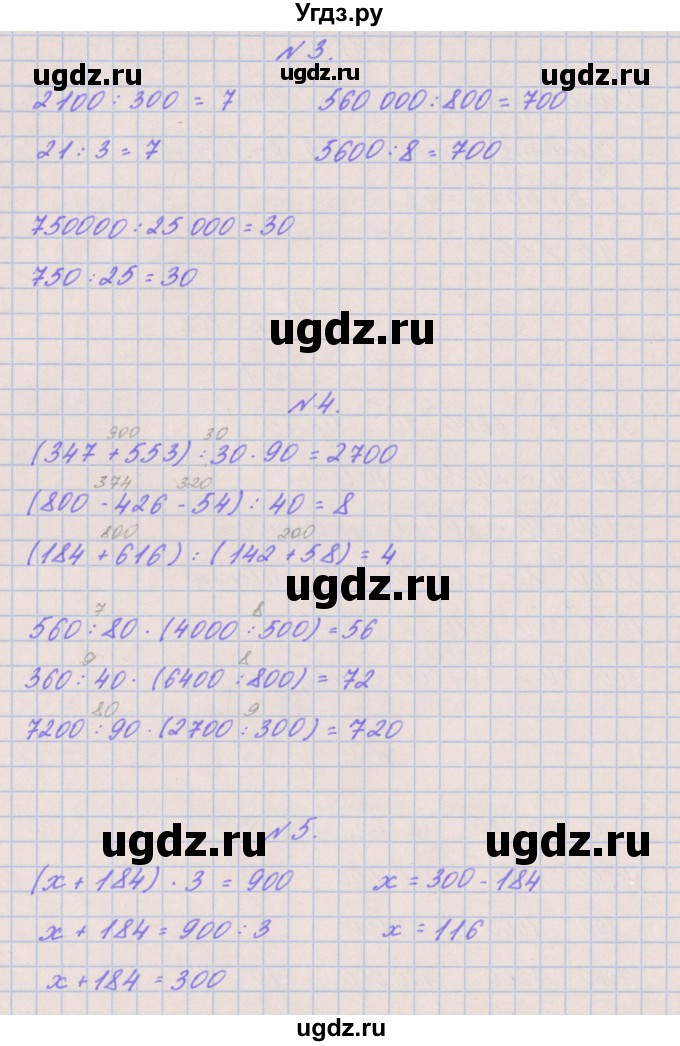 Угдз.ру
№3.
ugdz.ru ugdz.ru ugdz.ru
2100 : 300 = 7 560 000 : 800 = 700
21 : 3 = 7 5600 : 8 = 700
750000 : 25 000 = 30
750 : 25 = 30
ugdz.ru
№4.
900 30
(347 + 553) : 30 · 90 = 2700
374 320
(800 - 426 - 54) : 40 = 8
800 200
(184 + 616) : (142 + 58) = 4
ugdz.ru
7 8
560 : 80 · (4000 : 500) = 56
9 8
360 : 40 · (6400 : 800) = 72
80 9
7200 : 90 · (2700 : 300) = 720
№5.
ugdz.ru ugdz.ru
(x + 184) · 3 = 900 x = 300 - 184
x + 184 = 900 : 3 x = 116
x + 184 = 300
ugdz.ru